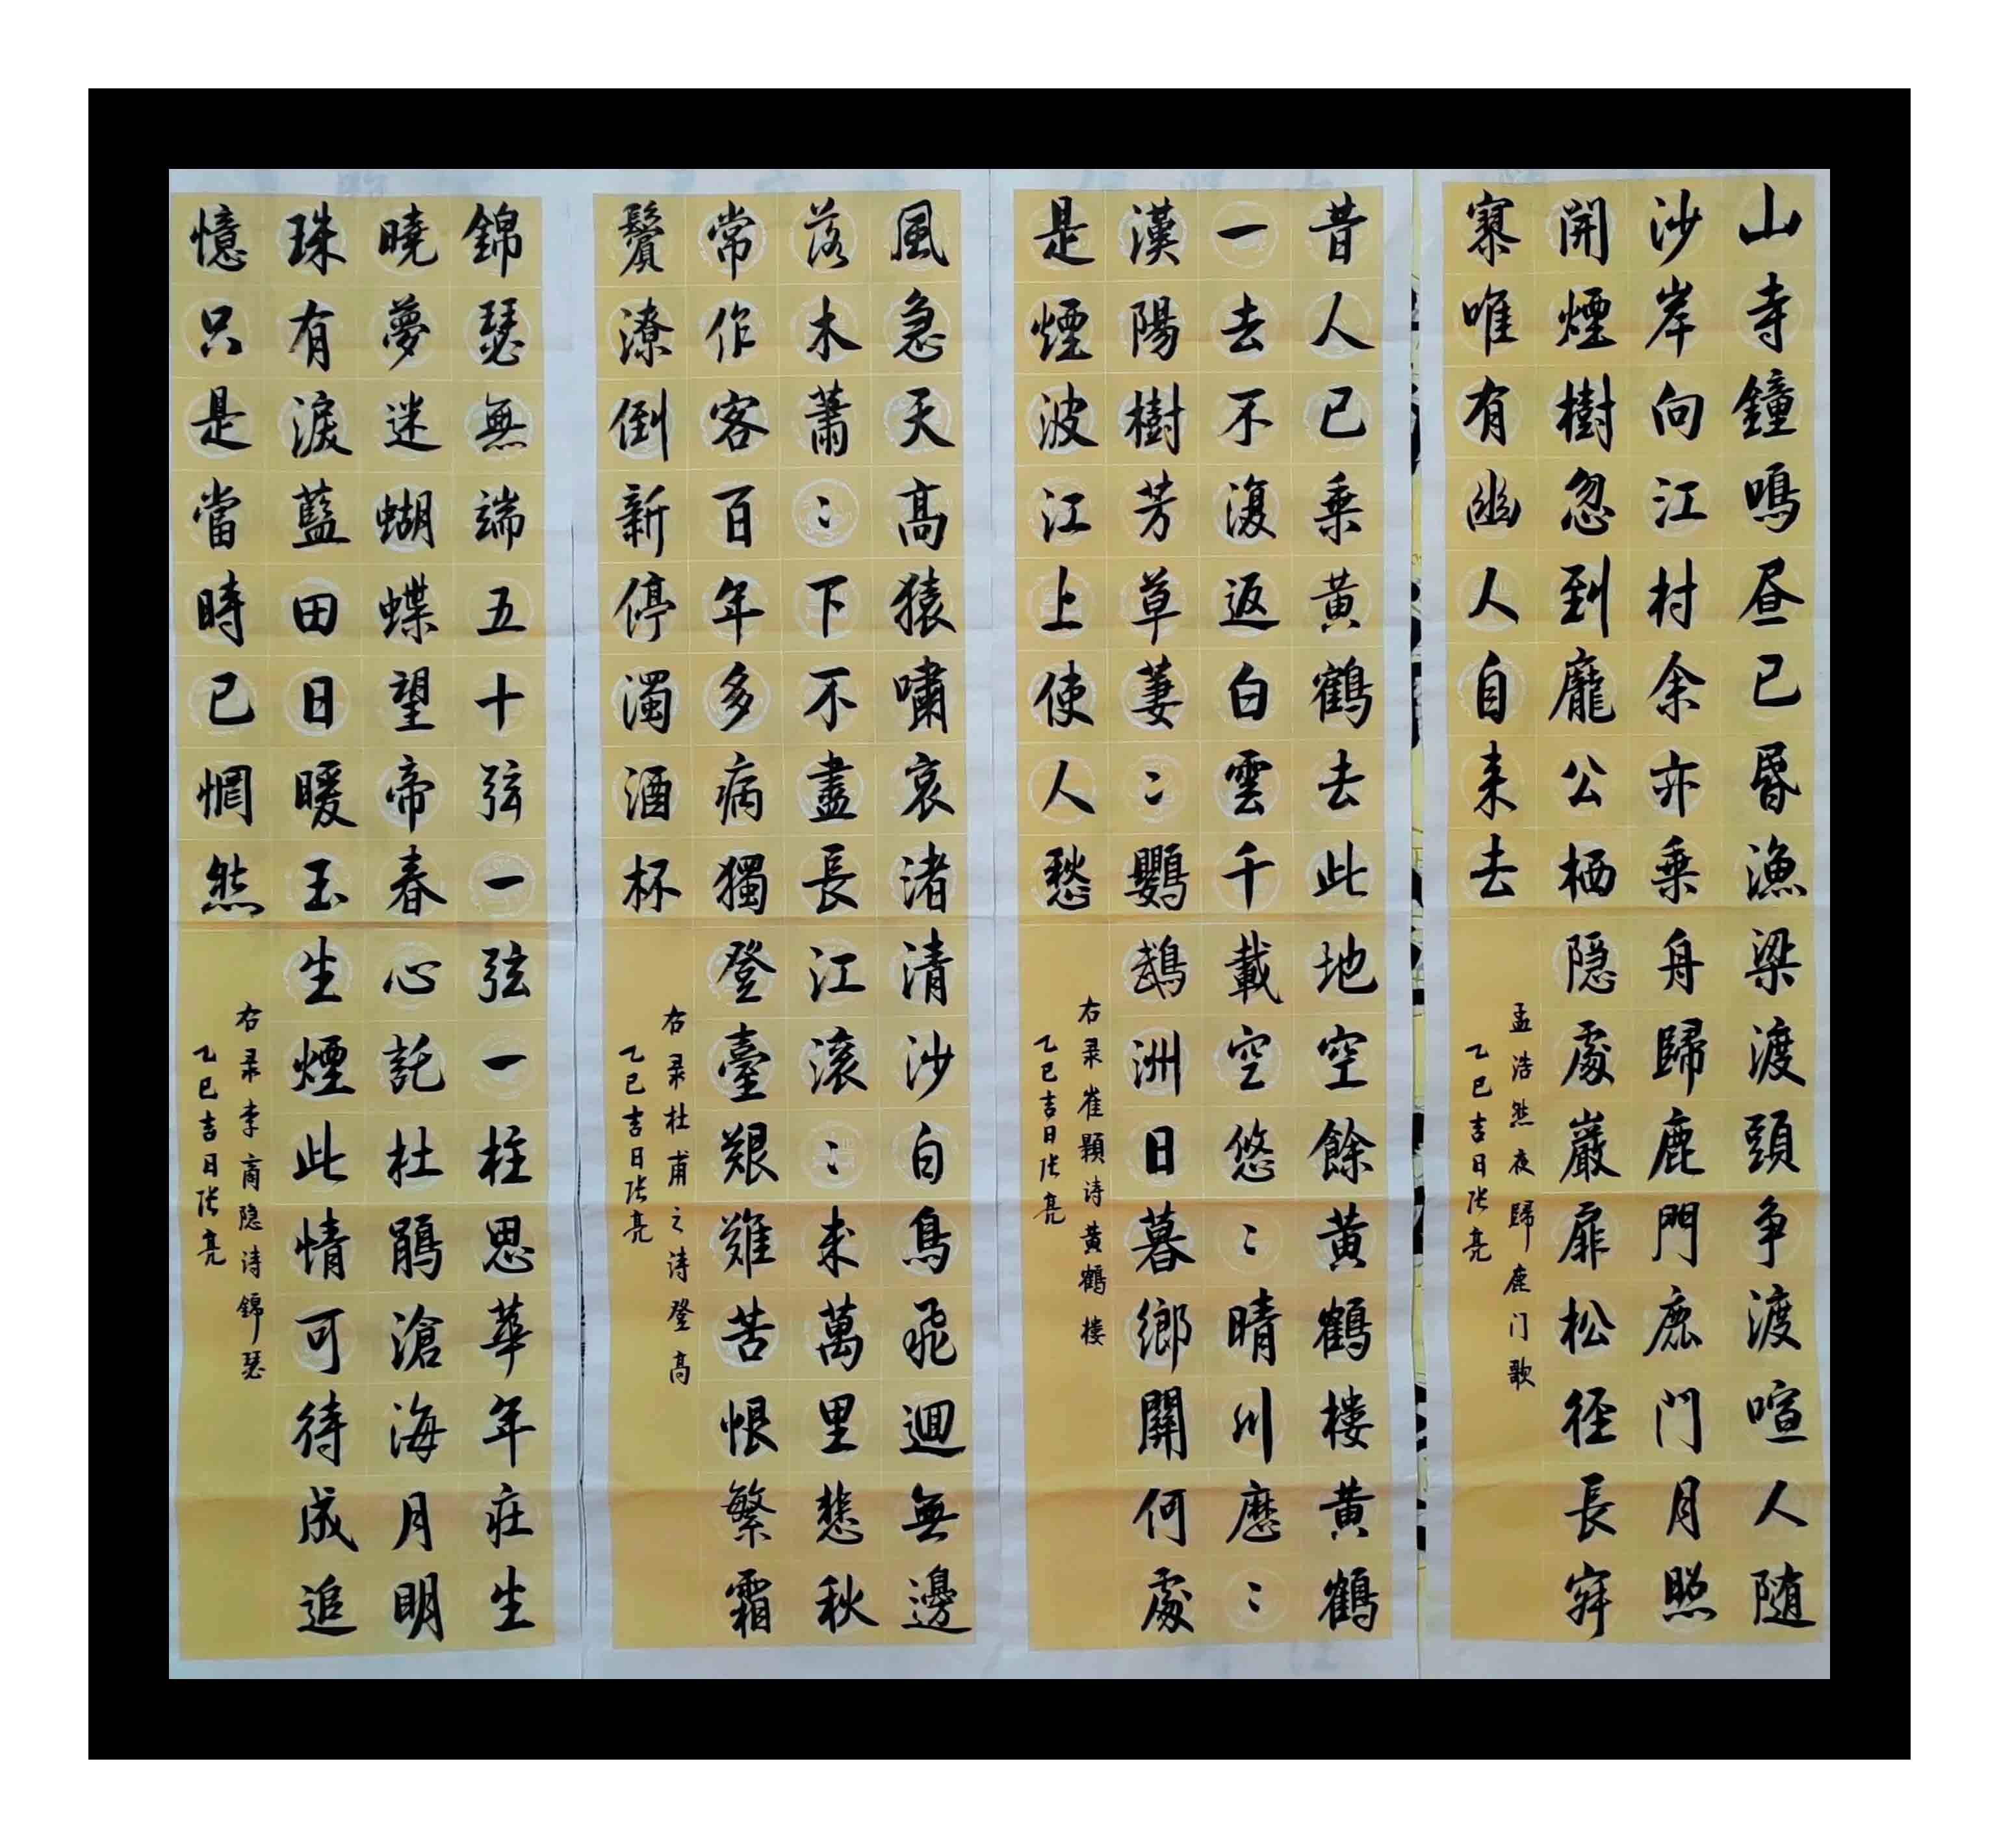 山寺鐘鳴昼已昏漁梁渡頭争渡喧人随
沙岸向江村余亦乗舟歸鹿門鹿門月照
開煙樹忽到龐公栖隠處巖扉松径長寂
寥唯有幽人自来去
孟浩然夜歸鹿门歌
乙巳吉日张亮
昔人已乗黄鶴去此地空餘黄鶴楼黄鶴
一去不復返白雲千載空悠〻晴川歴〻
漢陽樹芳草萋〻鸚鵡洲日暮鄉關何處
是煙波江上使人愁
右录崔顥诗黄鶴楼
乙巳吉日张亮
風急天高猿嘯哀渚清沙白鳥飛迴無邊
落木蕭〻下不盡長江滚〻来萬里悲秋
常作客百年多病獨登臺艱難苦恨繁霜
鬢潦倒新停濁酒杯
右录杜甫之诗登高
乙巳吉日张亮
錦瑟無端五十弦一弦一柱思華年莊生
曉夢迷蝴蝶望帝春心託杜鵑滄海月明
珠有淚藍田日暖玉生煙此情可待成追
憶只是當時已惘然
右录李商隐诗錦瑟
乙巳吉日张亮